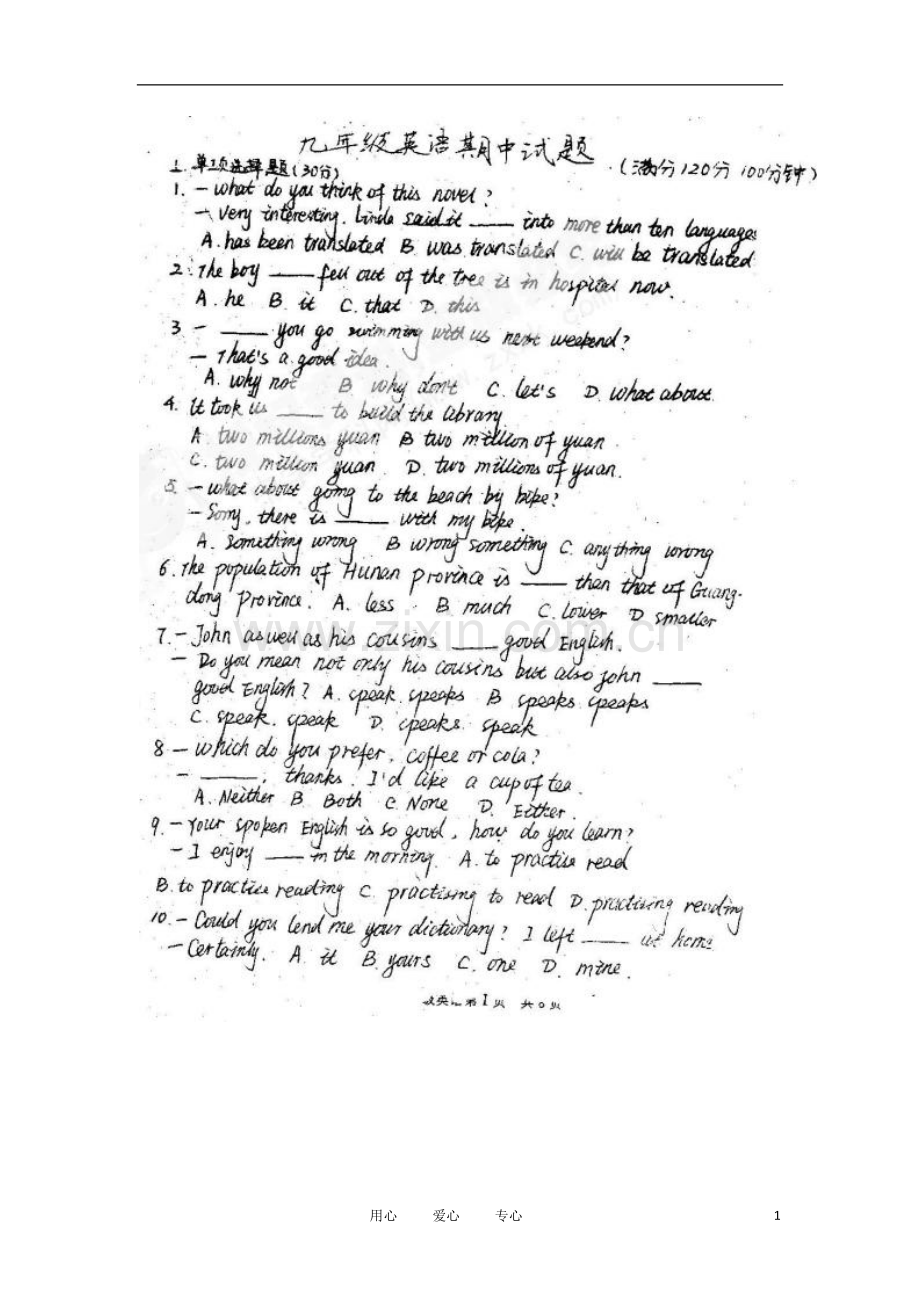 九年级英语期中试题
1.单项选择题(30分) (满分120分 100分钟)
1. - What do you think of this novel?
- Very interesting. Linda said it ____ into more than ten languages
A. has been translated B. was translated C. will be translated
2. The boy ____ fell out of the tree is in hospital now.
A. he B. it C. that D. this
3 - ____ you go swimming with us next weekend?
- That's a good idea.
A. why not B. why don't C. let's D. what about.
4. It took us ____ to build the library
A. two millions yuan B two million of yuan
C. two million yuan D. two millions of yuan.
5. - what about going to the beach by bike?
- Sorry, there is ____ with my bike.
A. something wrong B wrong something C. anything wrong
6. The population of Hunan Province is ____ than that of Guang-
dong Province. A. less B much C. lower D smaller
www.zixin.com.cn
7. - John as well as his cousins ____ good English.
- Do you mean not only his cousins but also John ____
good English? A. speak. speaks B speaks. speaks
C. speak. speak D. speaks. speak
8 - Which do you prefer, coffee or cola?
- ____, thanks. I'd like a cup of tea.
A. Neither B. Both C. None D. Either.
9. - Your spoken English is so good, how do you learn?
- I enjoy ____ in the morning. A. to practise read
B. to practise reading C. practising to read D. practising reading
10. - Could you lend me your dictionary? I left ____ at home
- Certainly. A. it B. yours C. one D. mine.
第1页 共 页
用心 爱心 专心 1